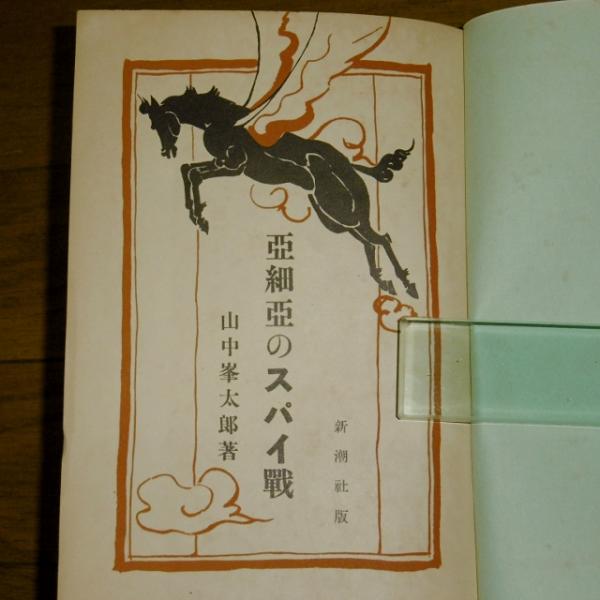 亞細亞のスパイ戰
山中峯太郎著
新潮社版